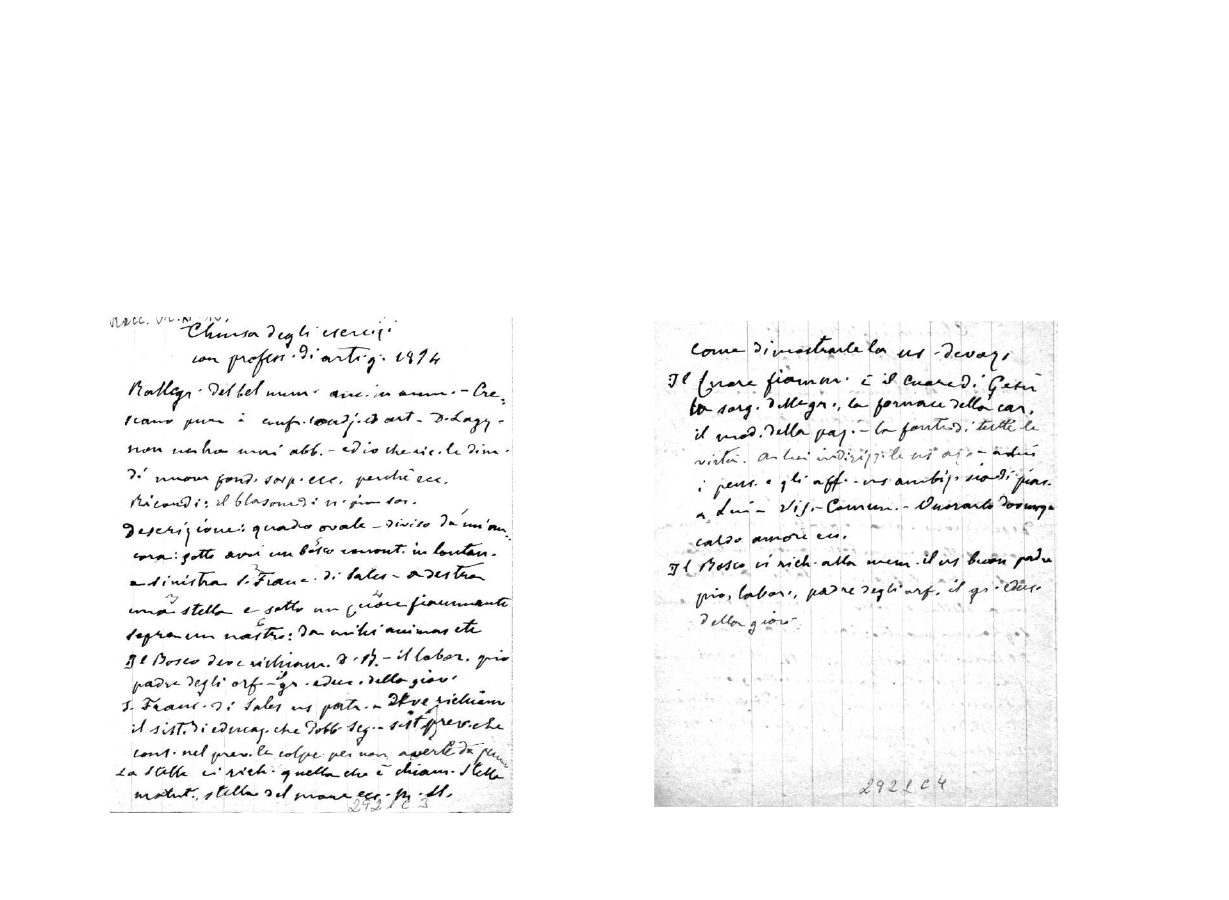 Chiusa degli esercizi
con profess. di artig. 1894
Rallegr. del bel num.
sciano pure i
non abb. - ed io che ric. le dim.
di nuove fond. sosp. ecc. perchè ecc.
Ricordi: il blasone di
Descrizione: quadro ovale - diviso da un'an-
cora: sotto avvi un bosco e mont. in lontan.
a sinistra S. Franc. di Sales - a destra
una stella e sotto un cuore fiammante
sopra un nastro: da mihi animas etc
Il Bosco deve richiam. D. B. - il labor. pio
padre degli orf - il gr. educ. della giov.
S. Franc. di Sales ns patr. - Deve richiam
il sist. di educaz. che dobb seg. - sist prev. che
cons. nel prev. le colpe per non averle da
La stella ci rich. quella che è chiam. stella
matut. stella del mare ecc.
292 1 C 3
come dimostrarle la ns - devoz.
Il Cuore fiamm. è il cuore di Gesù
la sorg. dell'egr., la fornace della car.
il mod. della paz. - la fonte di tutte le
virtù. a lui indirizz. le ns az. - a lui
i pens. e gli aff. - ns ambiz. sia di piac.
a Lui - Vis. - Comun. - Onorarlo
caldo amore ecc.
Il Bosco ci rich. alla mem. il ns buon padre
pio, labor., padre degli orf. il gr. educ.
della giov.
292 1 C 4